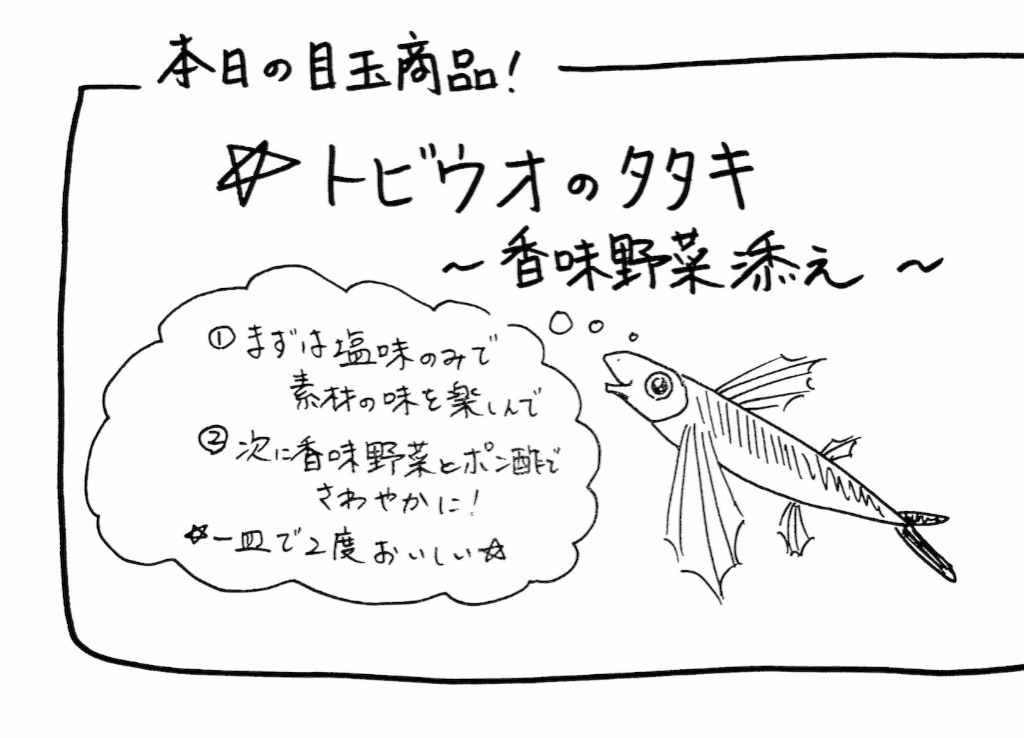 本日の目玉商品!
☆トビウオのタタキ
~香味野菜添え~
①まずは塩味のみで
素材の味を楽しんで
②次に香味野菜とポン酢で
さわやかに!
☆一皿で2度おいしい☆